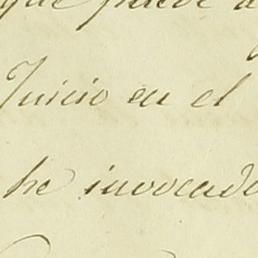 que puede a
Juicio en el
he invocado